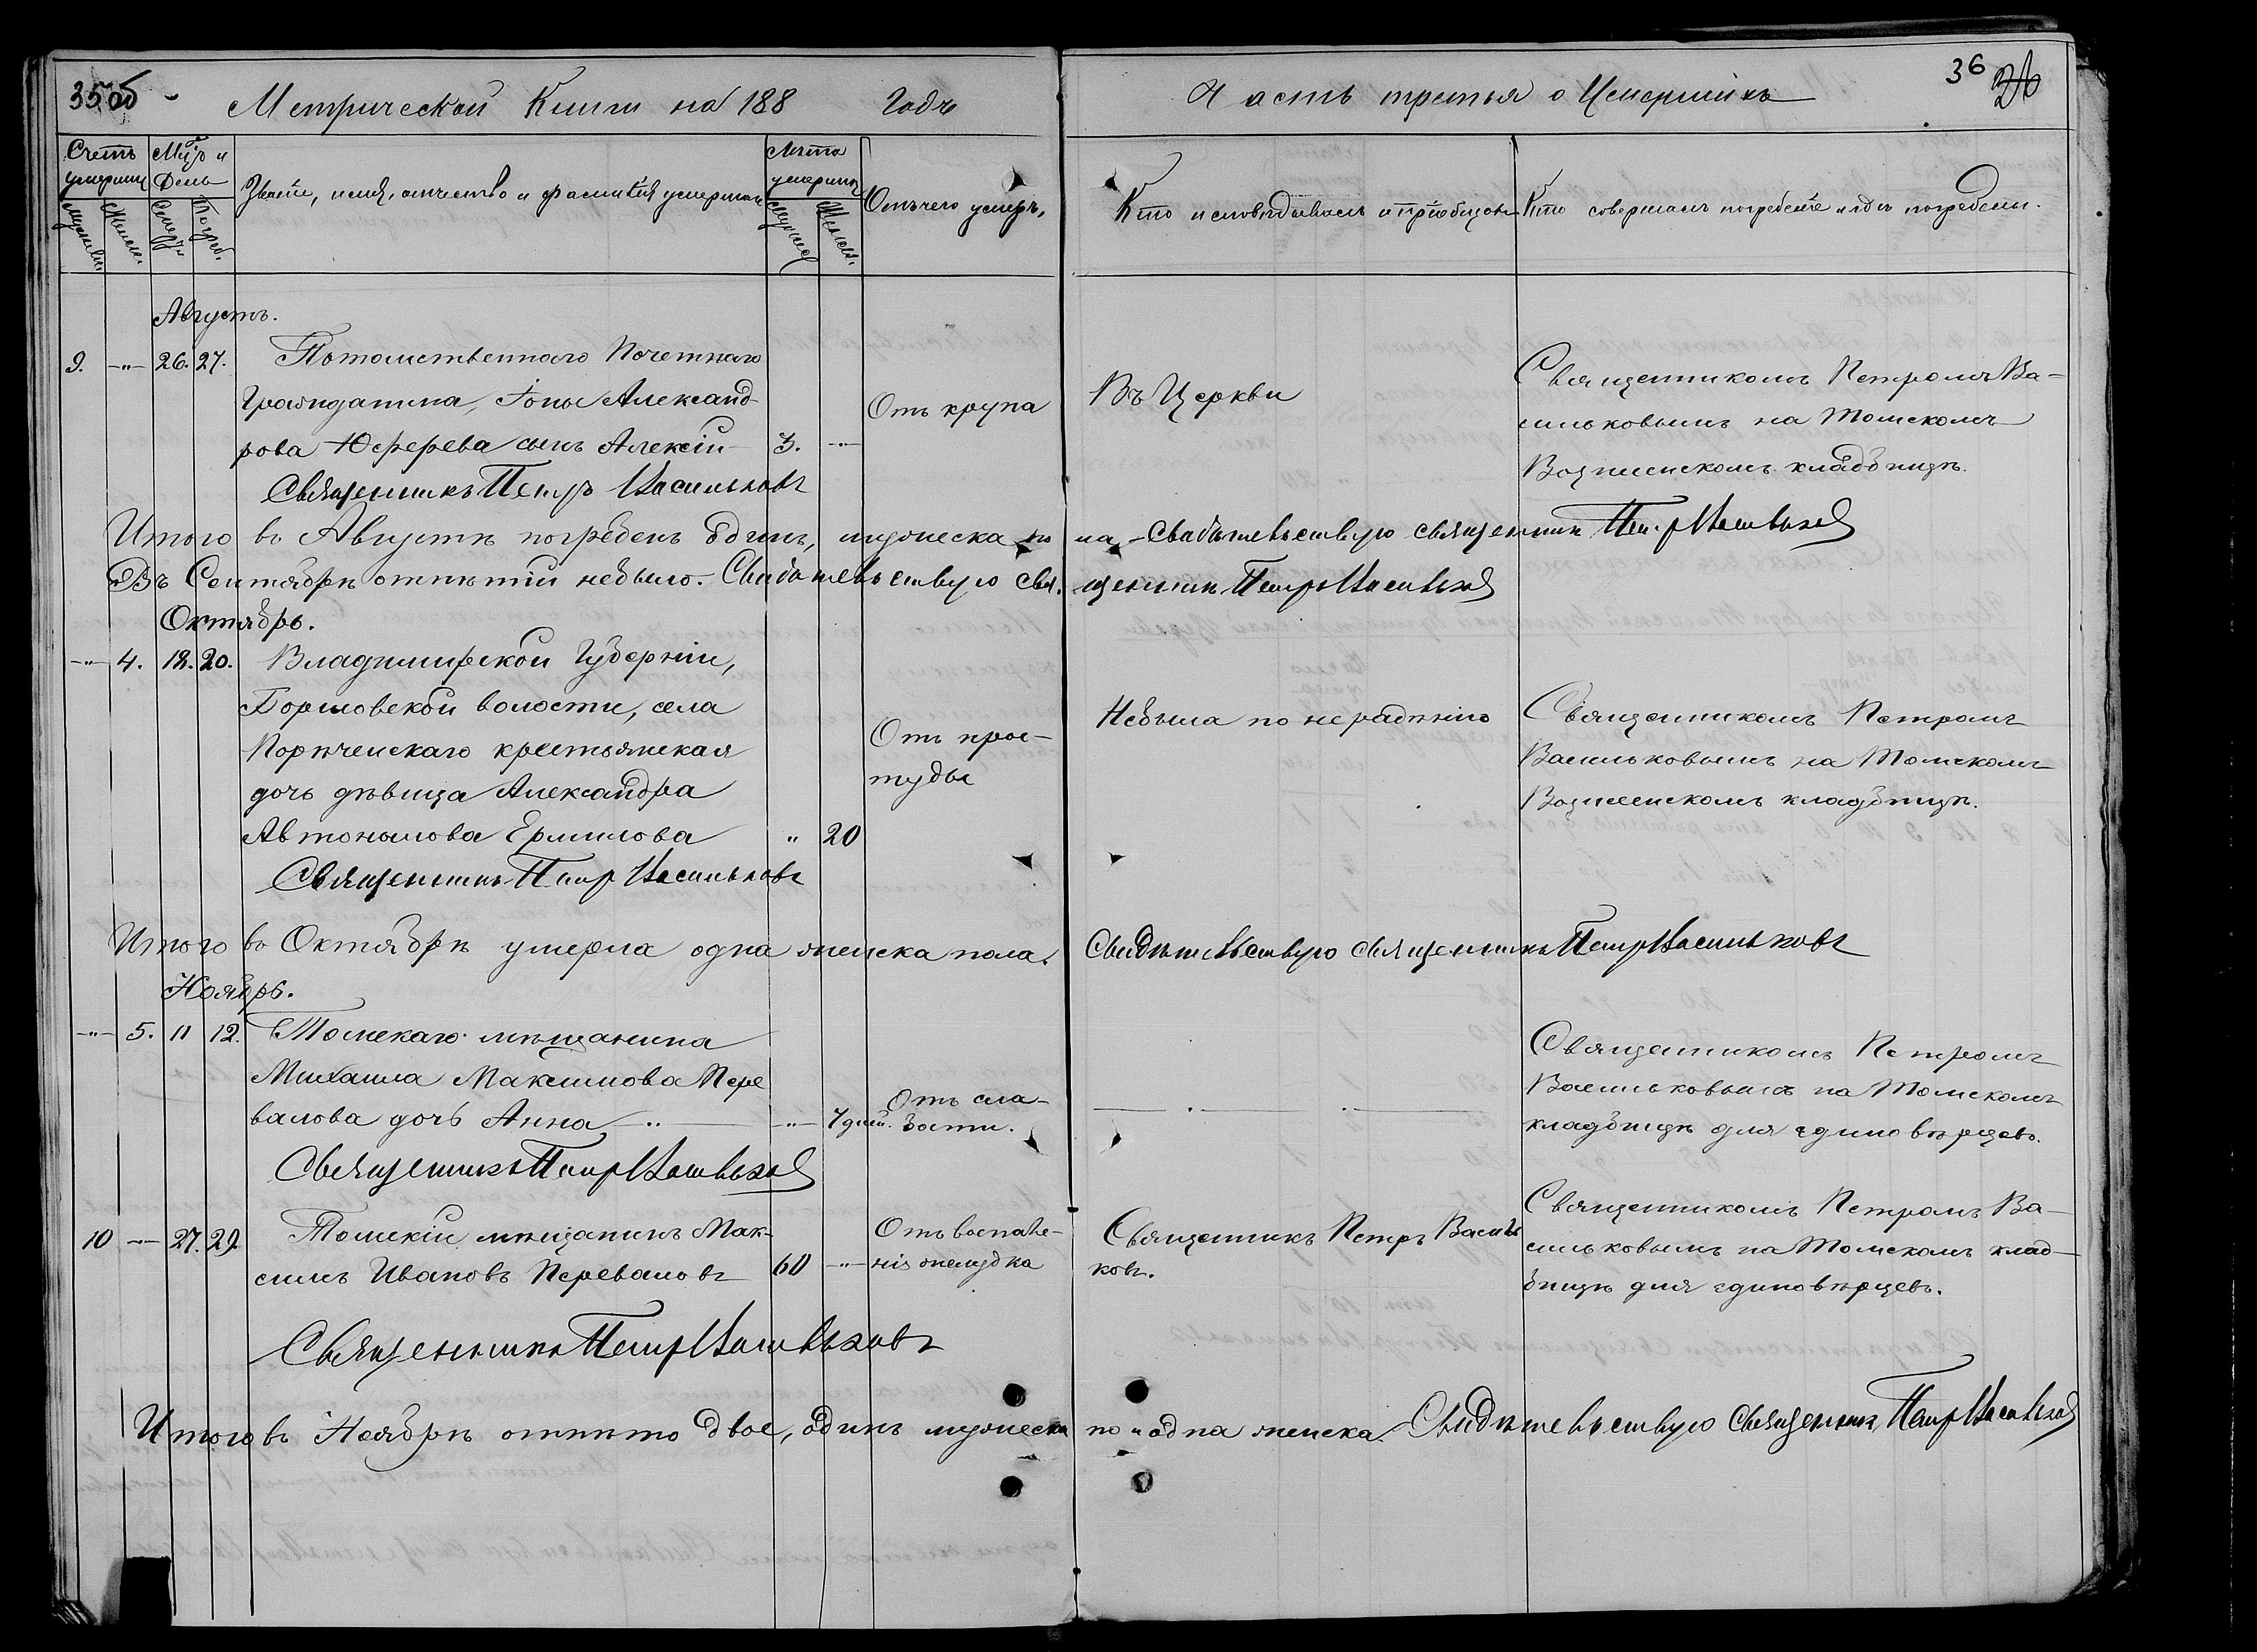 35об
Метрической Книги на 188 Годъ
Часть третья о Умершихъ
36
Счетъ умерши
Мцъ и День
Званіе, имя, отчество и фамилія умерших
Лѣта умерших
Отъ чего умеръ,
Кто исповѣдывалъ и пріобщалъ
Кто совершалъ погребеніе и гдѣ погребены.
Мужеск.
Женск.
Смерти
Погреб.
Мужеск
Женск.
Августъ.
9. -"- 26. 27. Потомственнаго Почетнаго
Гражданина, Іоны Александ-
рова Юферева сынъ Алексій 3. -"-
Отъ крупа
Въ Церкви
Священникомъ Петромъ Ва-
сильковымъ на Томскомъ
Вознисенскомъ кладбищѣ.
Священникъ Петръ Васильковъ
Итого во Августѣ погребенъ одинъ, мужеска по ла - Свидѣтельствую священникъ Петръ Васильков
Въ Сентябрѣ отпѣтій небыло. Свидѣтельствую свя. щенникъ Петръ Васильков
Октябрь.
-"- 4. 18. 20. Владимирской Губерніи,
Борисовской волости, села
Порѣченскаго крестьянская
дочь дѣвица Александра
Автономова Ермилова " 20
Отъ прос-
туды
Небыла по нерадѣнію
Священникомъ Петромъ
Васильковымъ на Томскомъ
Вознесенскомъ кладбищѣ.
Священникъ Петръ Васильковъ
Итого во Октябрѣ умерла одна женска пола. Свидѣтельствую священникъ Петръ Васильковъ
Ноябрь.
-"- 5. 11 12. Томскаго мѣщанина
Михаила Максимова Пере
валова дочь Анна -"- -"- 7 дней.
Отъ сла-
бости.
Священникомъ Петромъ
Васильковымъ на Томскомъ
кладбищѣ для единовѣрцевъ.
Священникъ Петръ Васильков
10 -"- 27. 29. Томскій мѣщанинъ Мак-
симъ Ивановъ Переваловъ 60 -"-
Отъ воспале-
нія желудка
Священникъ Петръ Василь
ковъ.
Священникомъ Петромъ Ва-
сильковымъ на Томскомъ клад-
бищѣ для единовѣрцевъ.
Священникъ Петръ Васильковъ
Итого въ Ноябрѣ отпѣто двое, одинъ мужеска по и одна женска. Свидѣтельствую Священник Петръ Васильков